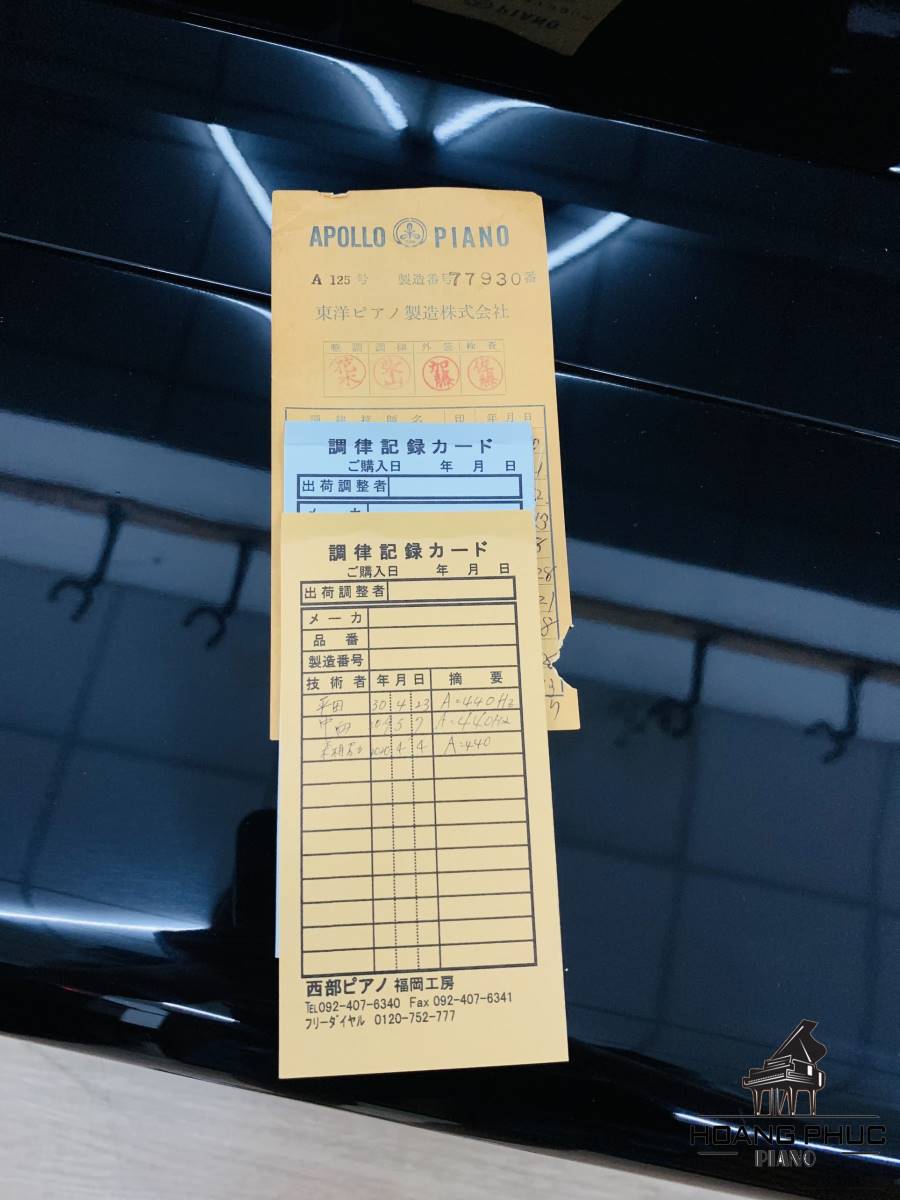 APOLLO PIANO
A 125 号 製造番号 77930 番
東洋ピアノ製造株式会社
整調 調律 外装 検査
花木 加藤 佐藤
調律技師名 印 年月日
調律記録カード
ご購入日 年 月 日
出荷調整者
メーカ
調律記録カード
ご購入日 年 月 日
出荷調整者
メーカ
品番
製造番号
技術者 年 月 日 摘要
平田 30 4 23 A=440Hz
5 7 A=440Hz
4 4 A=440
西部ピアノ 福岡工房
TEL092-407-6340 Fax 092-407-6341
フリーダイヤル 0120-752-777
HOANG PHUC
PIANO